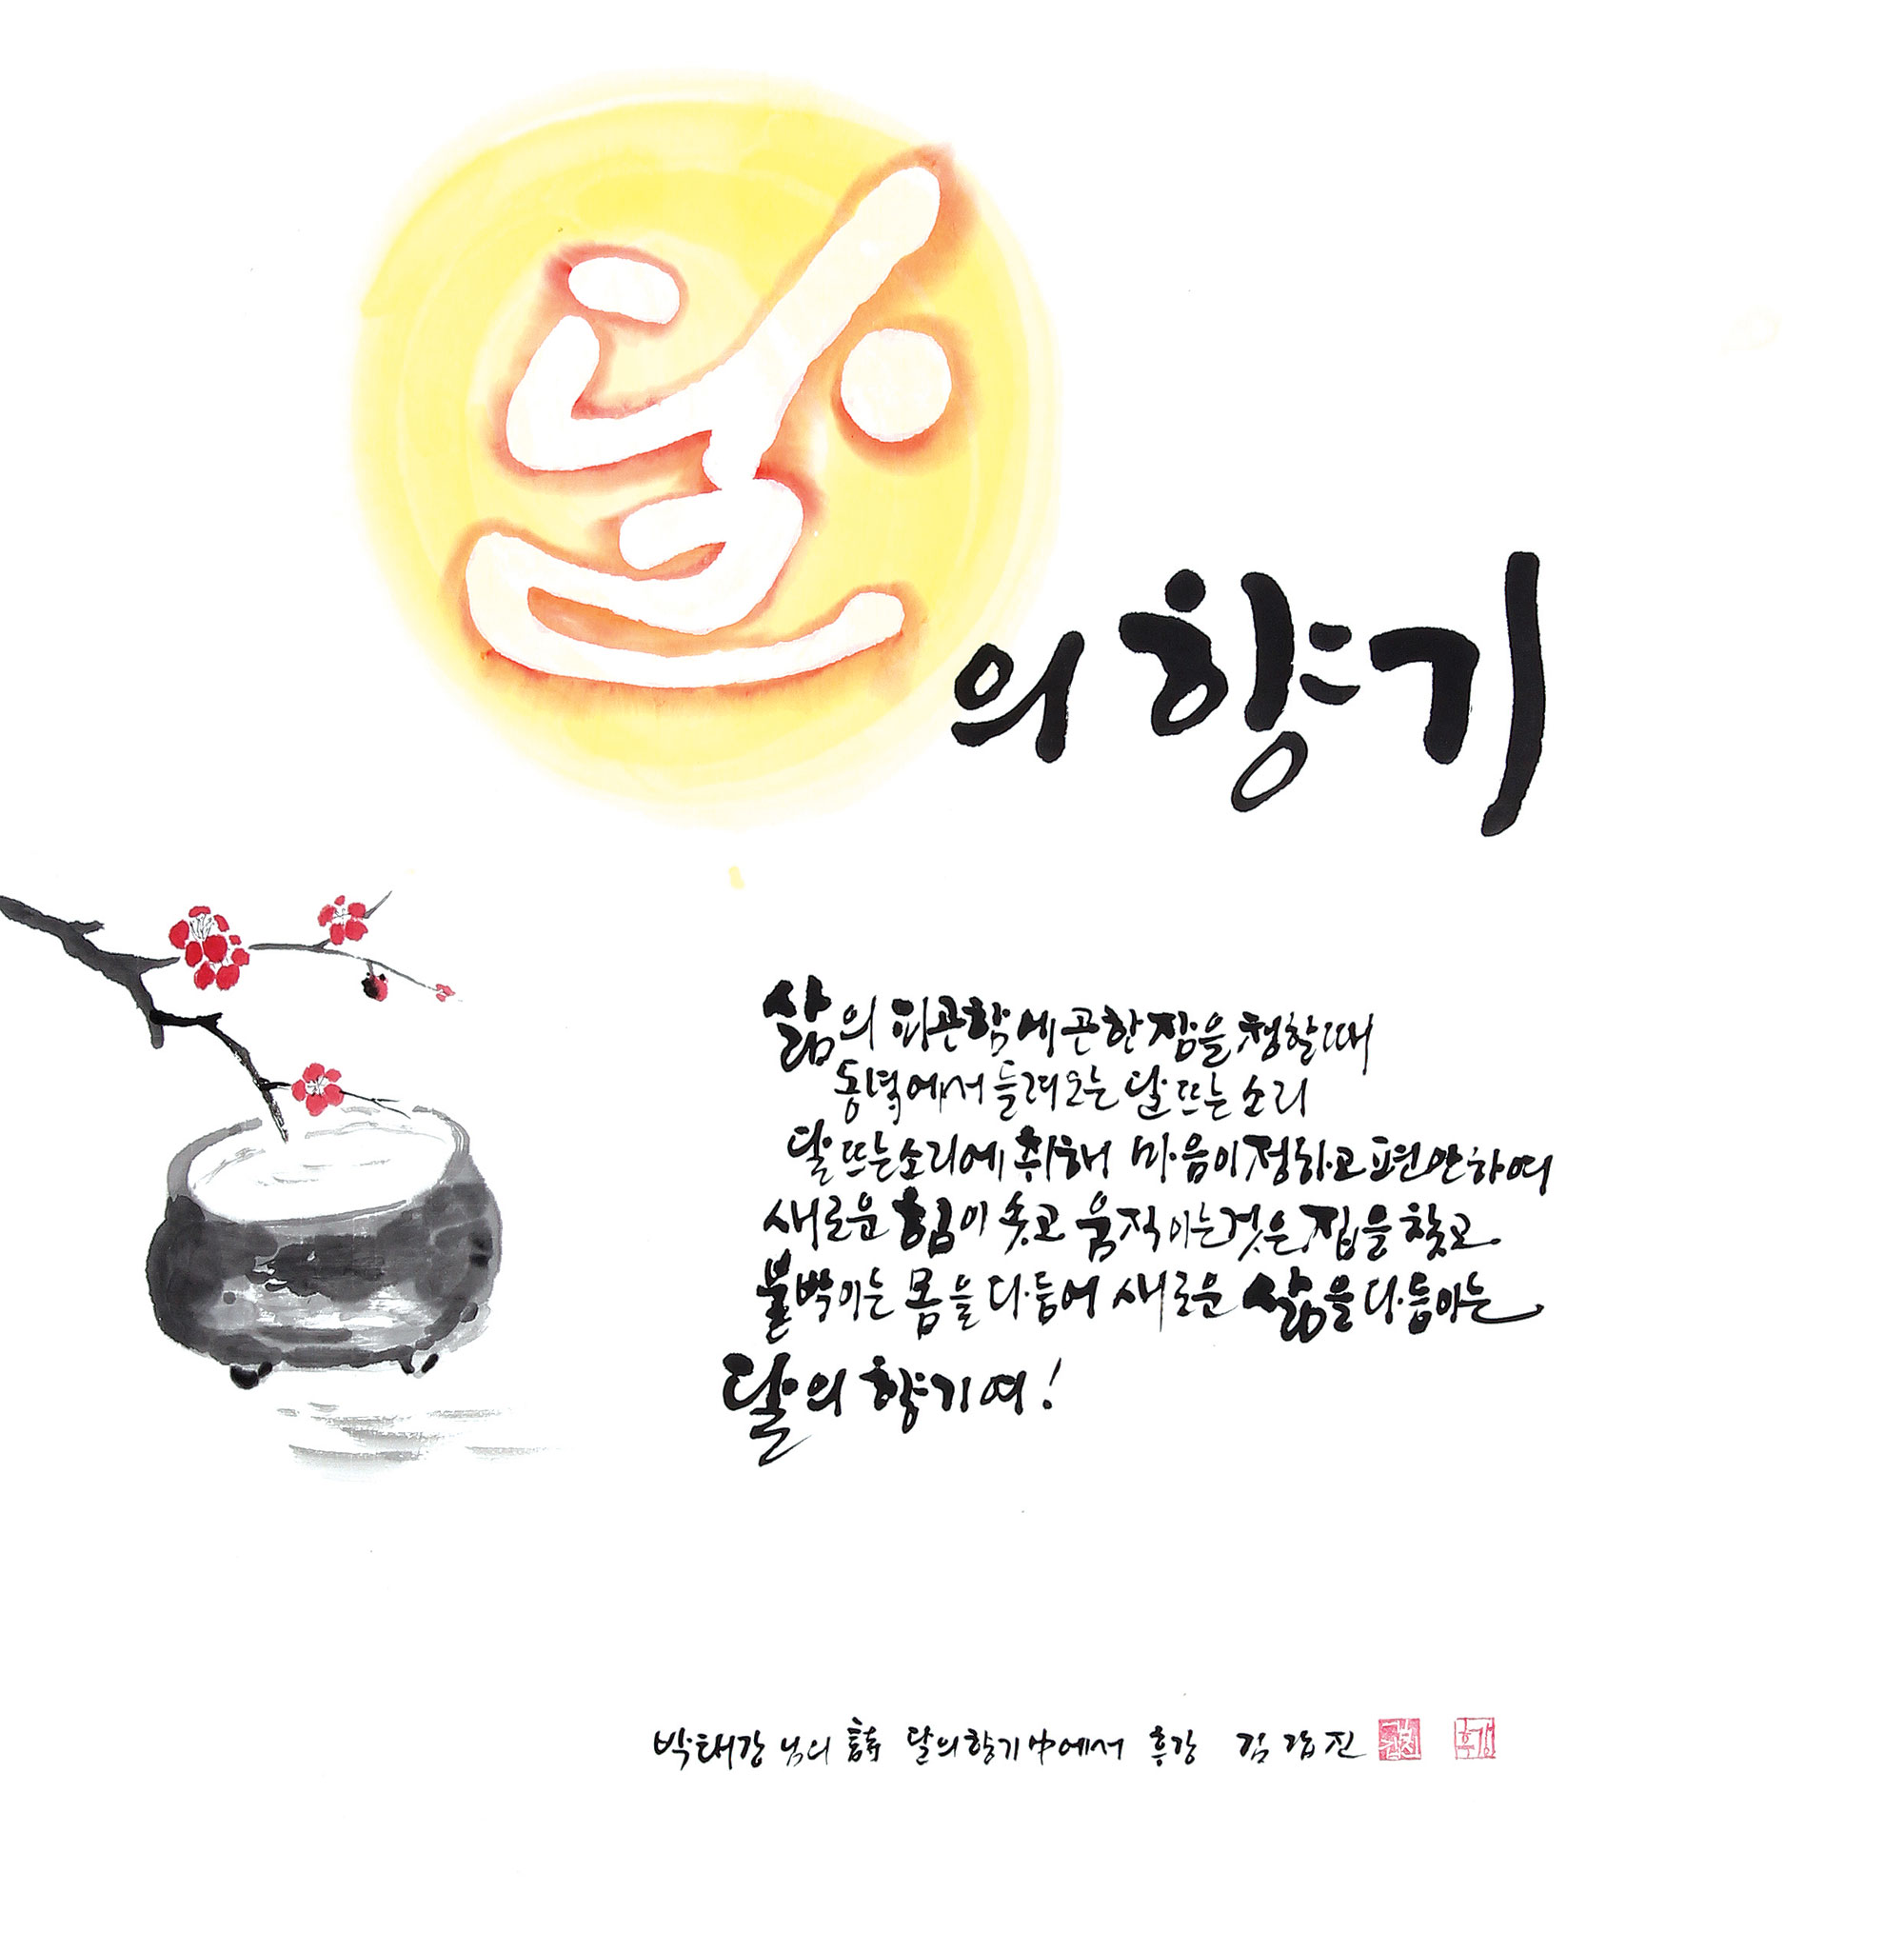 달의 향기
삶의 피곤함에 곤한 잠을 청할때
동녘에서 들려오는 달 뜨는 소리
달 뜨는 소리에 취해 마음이 정하고 편안하여
새로운 힘이 솟고 움직이는 것은 집을 찾고
붙박이는 몸을 다듬어 새로운 삶을 다듬이는
달의 향기여!
박태강 님의 詩 달의 향기 中에서 흥강 김갑진